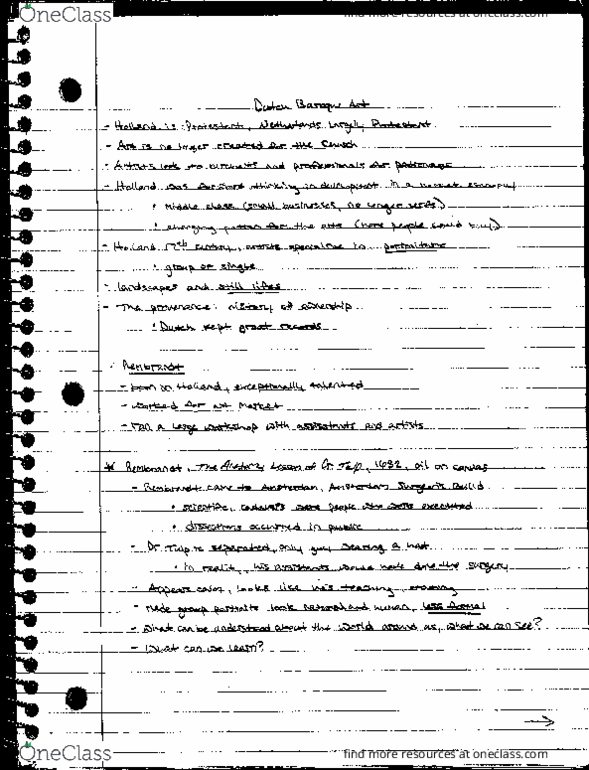 OneClass
find more resources at oneclass.com
Dutch Baroque Art
- Holland is Protestant, Netherlands largely Protestant
- Art is no longer created for the Church
- Artists look to merchants and professionals for patronage
- Holland was forward thinking in development in a market economy
• Middle class (small businesses, no longer serfs)
• emerging patron for the arts (more people could buy)
- Holland 17th century, artists specialize in portraiture
• group or single
- landscapes and still lifes
- The provenance: history of ownership
• Dutch kept great records
Rembrandt
- born in Holland, exceptionally talented
- worked for art market
- ran a large workshop with assistants and artists
* Rembrandt, The Anatomy Lesson of Dr. Tulp, 1632, oil on canvas
- Rembrandt came to Amsterdam, Amsterdam Surgeon's Guild
• scientific, cadavers were people who were executed
• dissections occurred in public
- Dr Tulp is separated, only guy wearing a hat
• In reality, his assistants would have done the surgery
- Appears calm, looks like he's teaching,
- Made group portraits look natural and human, less formal
- What can be understood about the world around us, what we can see?
- What can we learn?
→
OneClass
find more resources at oneclass.com